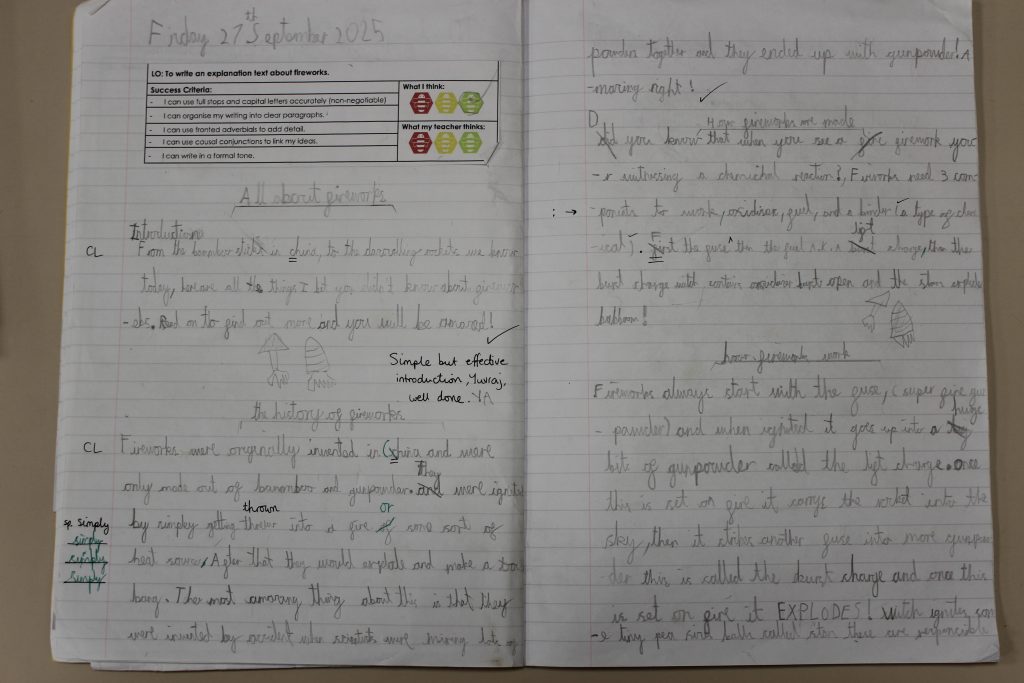 Friday 27th September 2025
LO: To write an explanation text about fireworks.
Success Criteria:
- I can use full stops and capital letters accurately (non-negotiable)
- I can organise my writing into clear paragraphs.
- I can use fronted adverbials to add detail.
- I can use causal conjunctions to link my ideas.
- I can write in a formal tone.
What I think:
What my teacher thinks:
All about fireworks
Introduction
CL
From the bamboo sticks in china, to the dazzling rockets we know
today, here are all the things I bet you didn't know about firewor
-ks. Read on to find out more and you will be amazed!
Simple but effective
introduction, Yuvraj,
well done. YA
the history of fireworks
CL
Fireworks were orginally invented in China and were
only made out of bamboo and gunpowder. They were ignite
sp. simply
simply
simply
simply
by simpley getting thrown into a fire or some sort of
heat source. After that they would explode and make a
bang. The most amazing thing about this is that they
were invented by accident when scientists were mixing lots of
powder together and they ended up with gunpowder! A
-mazing right!
How fireworks are made
Did you know that when you see a firework you
-r witnessing a chemichal reaction?, Fireworks need 3 com
: → -ponints to work, oxidiser, fuel, and a binder (a type of chem
-ical). First the fuse, then the fuel a.k.a lift charge, then the
burst charge witch contains oxidiser bursts open and the stars explode
babboom!
how firework work
Fireworks always start with the fuse, (super fine gun
- powder) and when ignited it goes up into a huge
bit of gunpowder called the lift charge. once
this is set on fire it carrys the rocket into the
sky, then it strikes another fuse into more gunpow
-der this is called the burst charge and once this
is set on fire it EXPLODES! witch ignites som
-e tiny pea sized balls called stars these are responcible